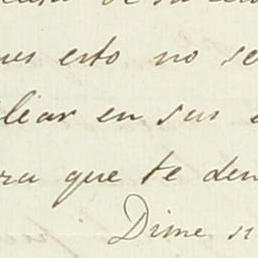 esto no se
lear en sus
ra que te den
Dime si